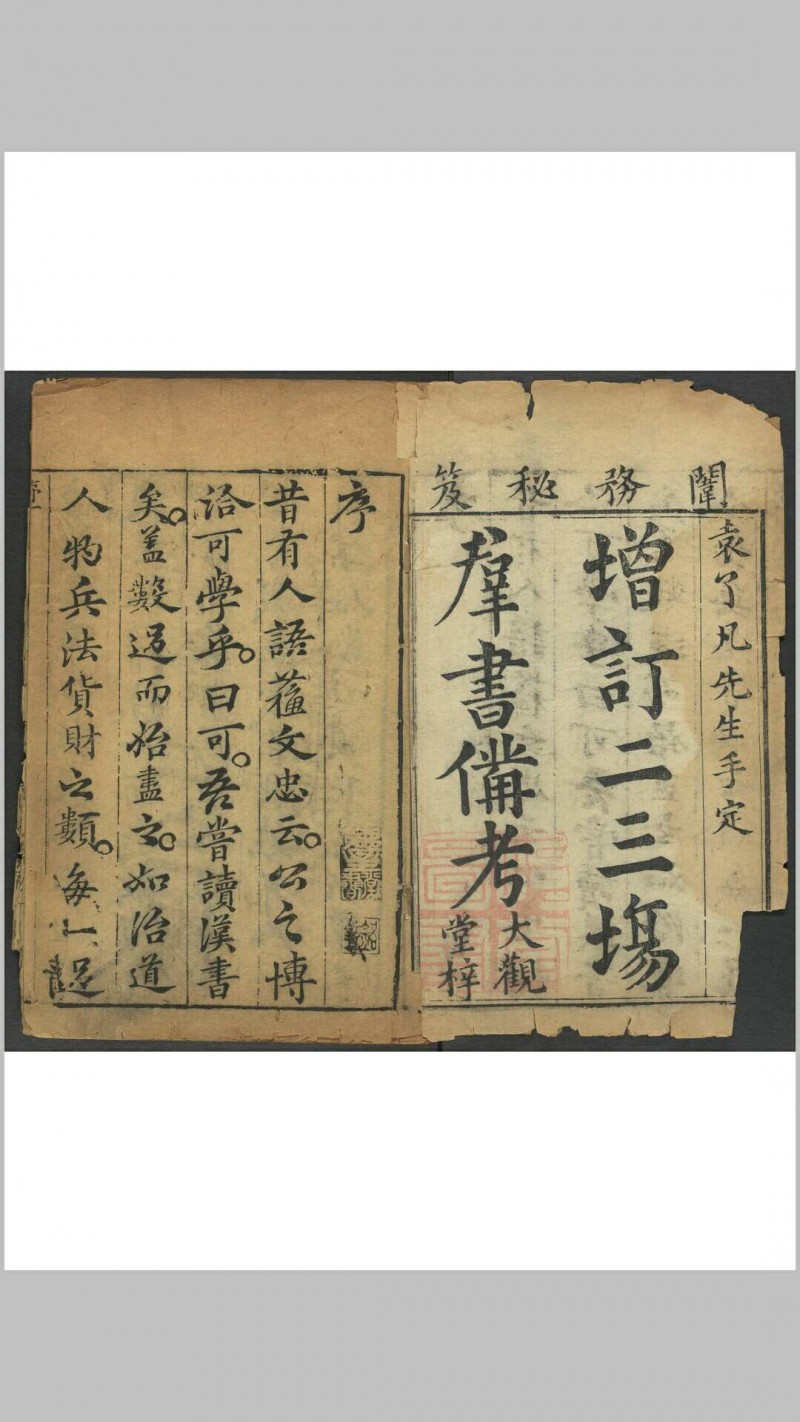 闈務秘笈
袁了凡先生手定
增訂二三塲
羣書備考
大觀
堂梓
序
昔有人語蘓文忠云。公之博
洽可學乎。曰可。吾嘗讀漢書
矣。蓋數過而始盡之。如治道
人物兵法貨財之類。每一過